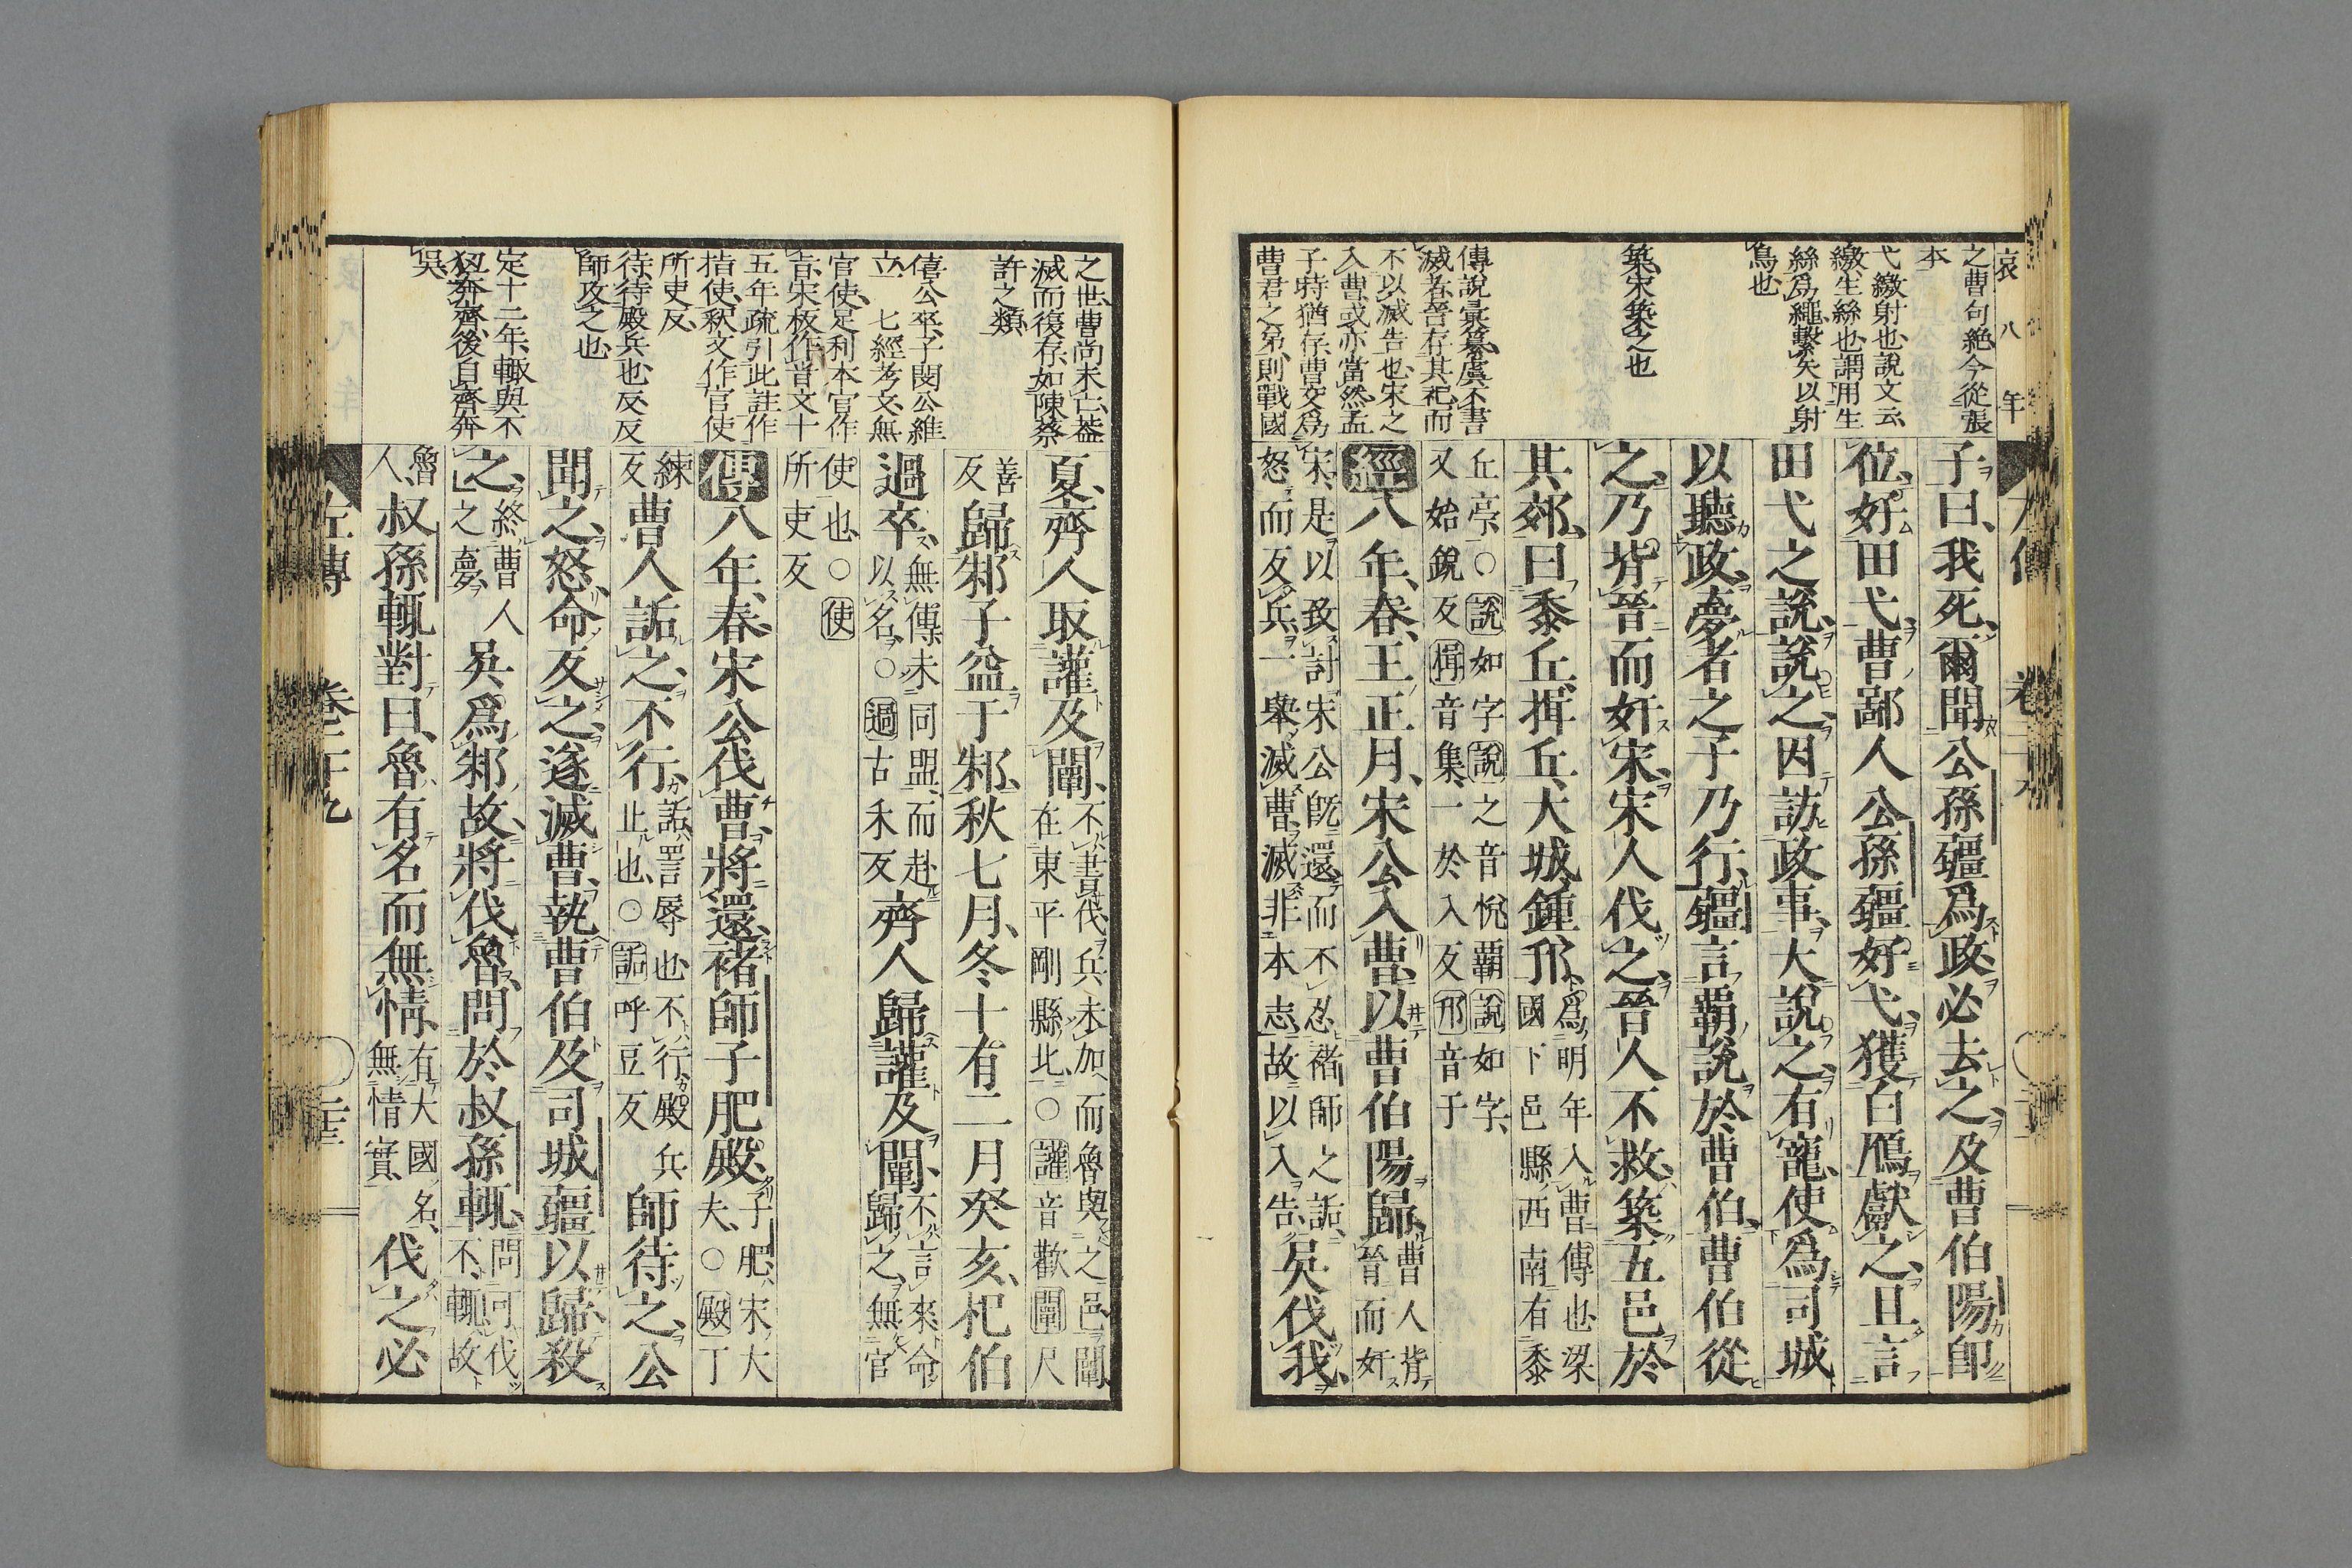 哀 八 年
之曹句絶今從張
本
弋繳射也説文云
繳生絲也謂用生
絲爲繩繫矢以射
鳥也
築宋築之也
傳説彙纂虞不書
滅者晉存其祀而
不以滅告也宋之
入曹或亦當然孟
子時猶存曹交爲
曹君之弟則戰國
子曰、我死、爾聞公孫疆爲政、必去之、及曹伯陽即
位、好田弋、曹鄙人公孫疆好弋、獲白鴈、獻之、且言
田弋之説、説之、因訪政事、大説之、有寵、使爲司城
以聽政、夢者之子乃行、疆言霸説於曹伯、曹伯從
之、乃背晉而奸宋、宋人伐之、晉人不救、築五邑於
其郊、曰黍丘、揖丘、大城、鍾、邘、爲明年入曹傳也、梁國下邑縣西南有黍
丘亭、○説如字説之音悦覇説如字、又始鋭反揖音集、一於入反邘音于
經八年、春、王正月、宋公入曹、以曹伯陽歸、曹人背晉而奸
宋、是以致討、宋公既還、而不忍褚師之詬、怒而反兵、一舉滅曹、滅非本志、故以入告、呉伐我、
之世曹尚未亡蓋
滅而復存如陳蔡
許之類
僖公卒子閔公維
立 七經考文無
官使足利本官作
旨宋板作首文十
五年疏引此註作
指使釈文作官使
所吏反
待待殿兵也反反
師攻之也
定十二年輙與不
狃奔齊後自齊奔
呉
夏、齊人取讙及闡、不書伐、兵未加、而魯與之邑、闡、在東平剛縣北、○讙音歡闡尺
善反歸邾子益于邾、秋七月、冬十有二月癸亥、杞伯
過卒、無傳、未同盟、而赴以名、○過古禾反齊人歸讙及闡、不言來、命歸之、無官
使也、○使所吏反
傳八年、春、宋公伐曹、將還、褚師子肥殿、子肥、宋大夫、○殿丁
練反曹人詬之、不行、詬、詈辱也、不行、殿兵止也、○詬呼豆反師待之、公
聞之、怒、命反之、遂滅曹、執曹伯及司城疆以歸、殺
之、終曹人之夢、呉爲邾故、將伐魯、問於叔孫輙、問可伐不、輙故
魯人、叔孫輙對曰、魯有名而無情、有大國名、無情實、伐之必
左傳 卷二十九